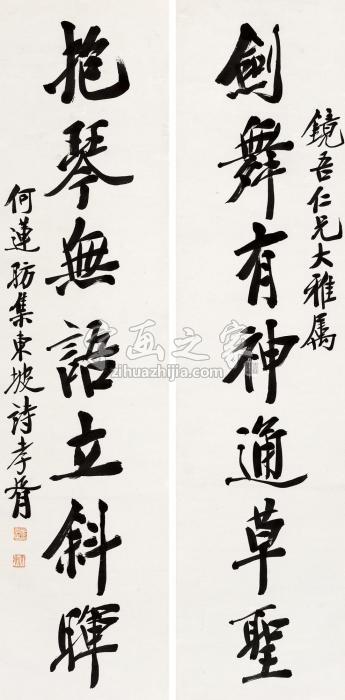 鏡吾仁兄大雅属
劍舞有神通草聖
抱琴無語立斜暉
何蓮舫集東坡詩孝胥
字画之家
zihuazhijia.com